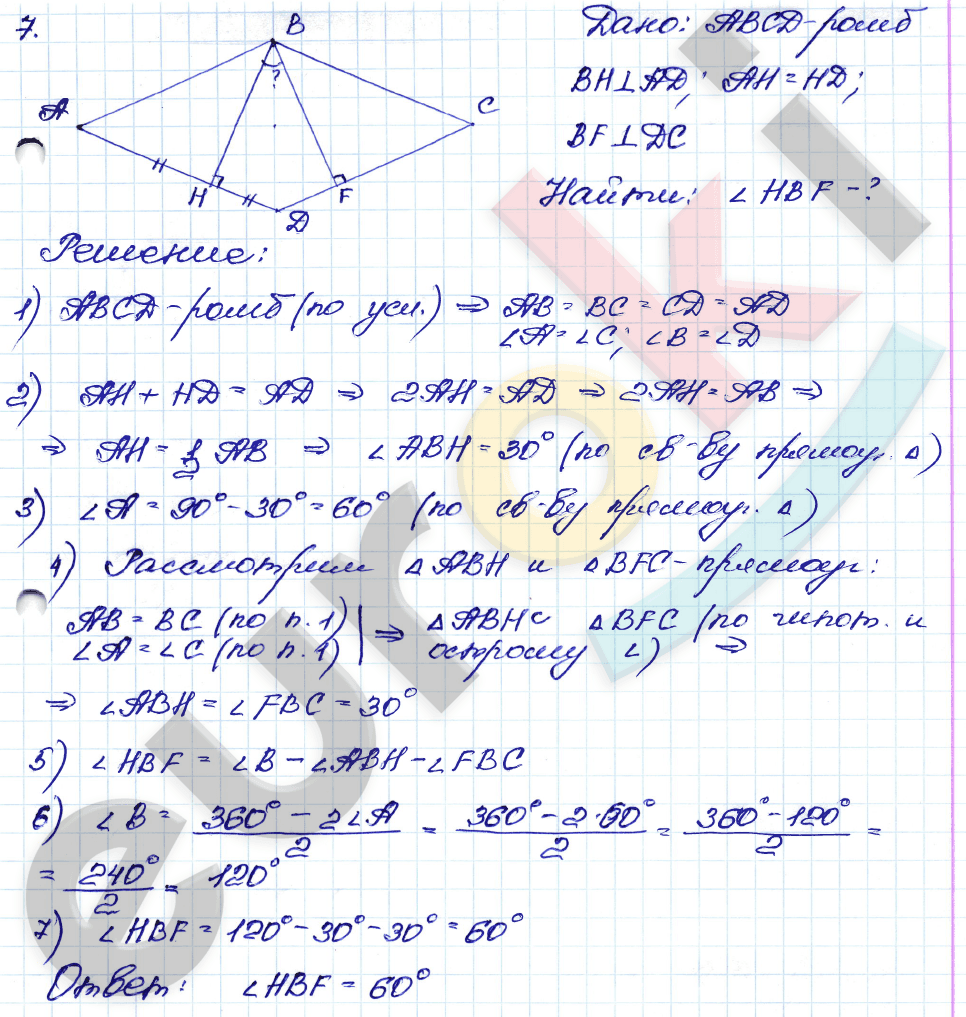 7.
B
?
A
C
H
F
D
Дано: ABCD-ромб
BH⊥AD; AH=HD;
BF⊥DC
Найти: ∠HBF-?
Решение:
1) ABCD-ромб (по усл.) ⇒ AB = BC = CD = AD
∠A=∠C; ∠B=∠D
2) AH + HD = AD ⇒ 2AH = AD ⇒ 2AH = AB ⇒
⇒ AH = 1/2 AB ⇒ ∠ABH = 30° (по св-ву прямоуг. △)
3) ∠A = 90° - 30° = 60° (по св-ву прямоуг. △)
4) Рассмотрим △ABH и △BFC - прямоуг.:
AB = BC (по п. 1) ⇒ △ABH △BFC (по гипот. и
∠A = ∠C (по п. 1) острому ∠) ⇒
⇒ ∠ABH = ∠FBC = 30°
5) ∠HBF = ∠B - ∠ABH - ∠FBC
6) ∠B = (360° - 2∠A)/2 = (360° - 2·60°)/2 = (360° - 120°)/2 =
= 240°/2 = 120°
7) ∠HBF = 120° - 30° - 30° = 60°
Ответ: ∠HBF = 60°
euroki